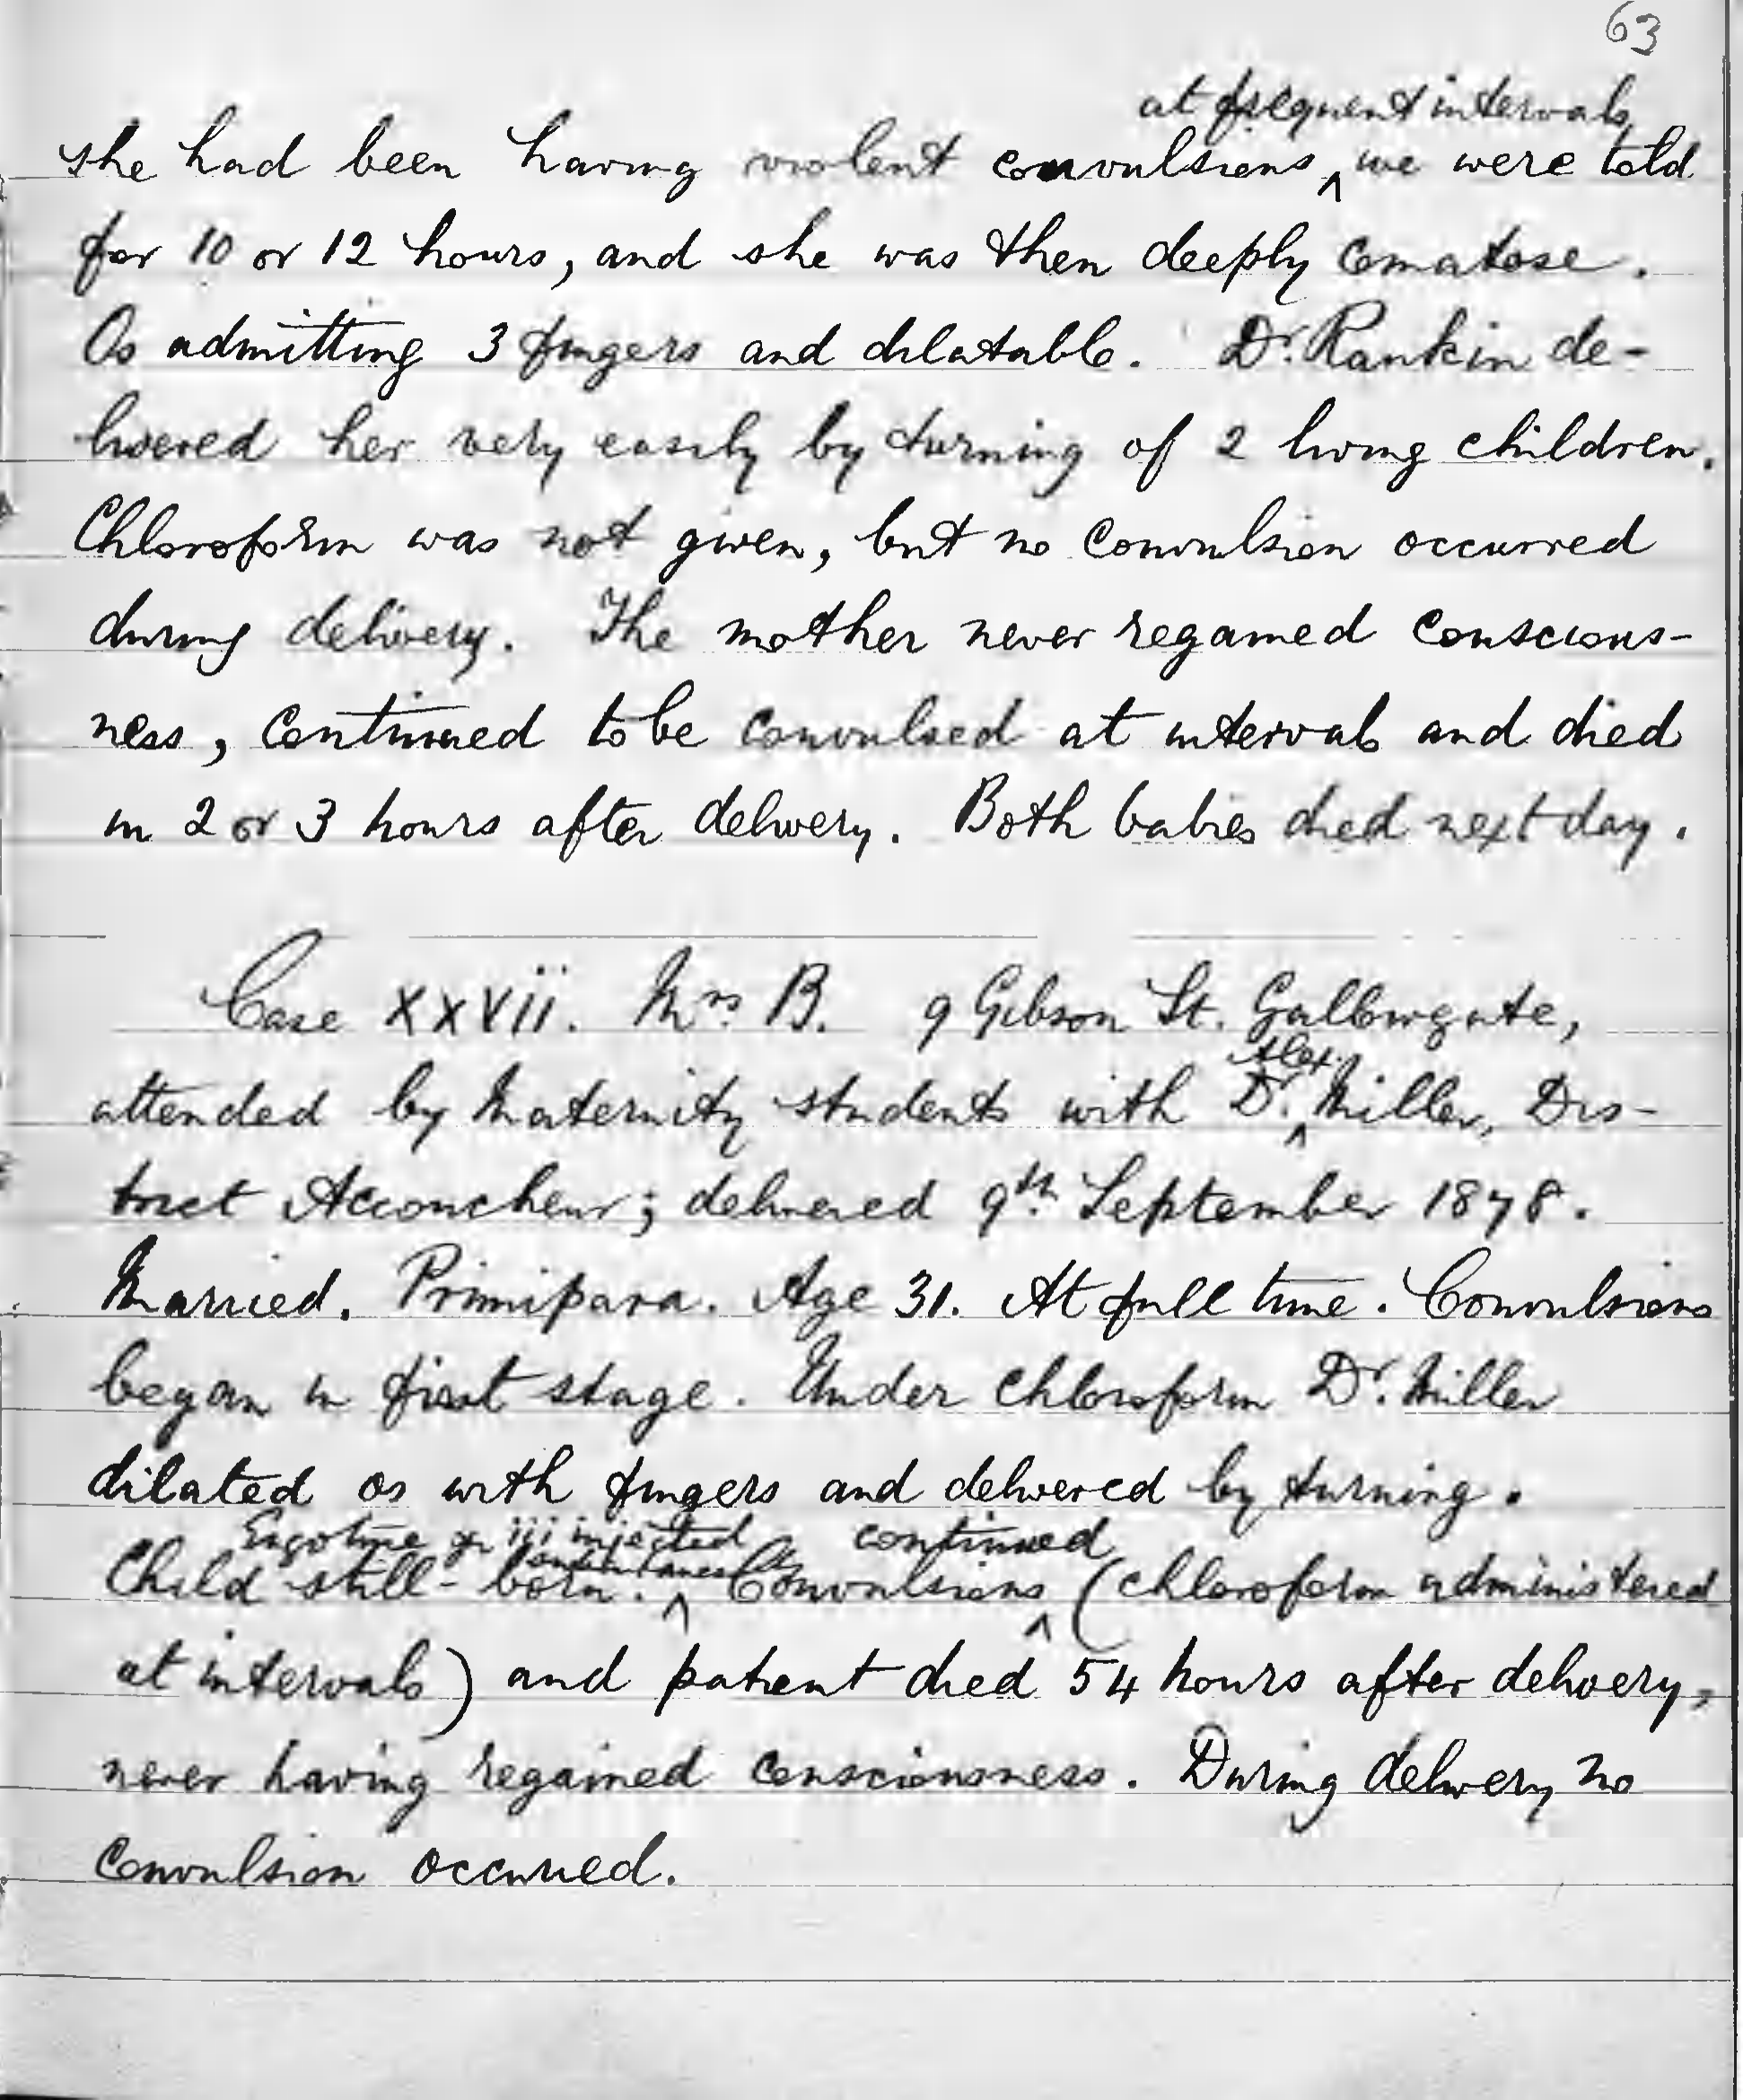 63
at frequent intervals,
she had been having violent convulsions ^ we were told
for 10 or 12 hours, and she was then deeply comatose.
Os admitting 3 fingers and dilatable. Dr. Rankin de-
livered her very easily by turning of 2 living children.
Chloroform was not given, but no convulsion occurred
during delivery. The mother never regained conscious-
ness, continued to be convulsed at intervals and died
in 2 or 3 hours after delivery. Both babies died next day.
Case XXVII. Mrs. B. 9 Gibson St. Gallowgate,
Alex.
attended by Maternity students with Dr. ^ Miller, Dis-
trict Accoucheur; delivered 9th. September 1878.
Married. Primipara. Age 31. At full time. Convulsions
began in first stage. Under chloroform Dr. Miller
dilated os with fingers and delivered by turning.
Ergotine gr iii injected continued
subcutaneously
Child still-born. ^ Convulsions ^ (chloroform administered
at intervals) and patient died 54 hours after delivery,
never having regained consciousness. During delivery no
convulsion occurred.